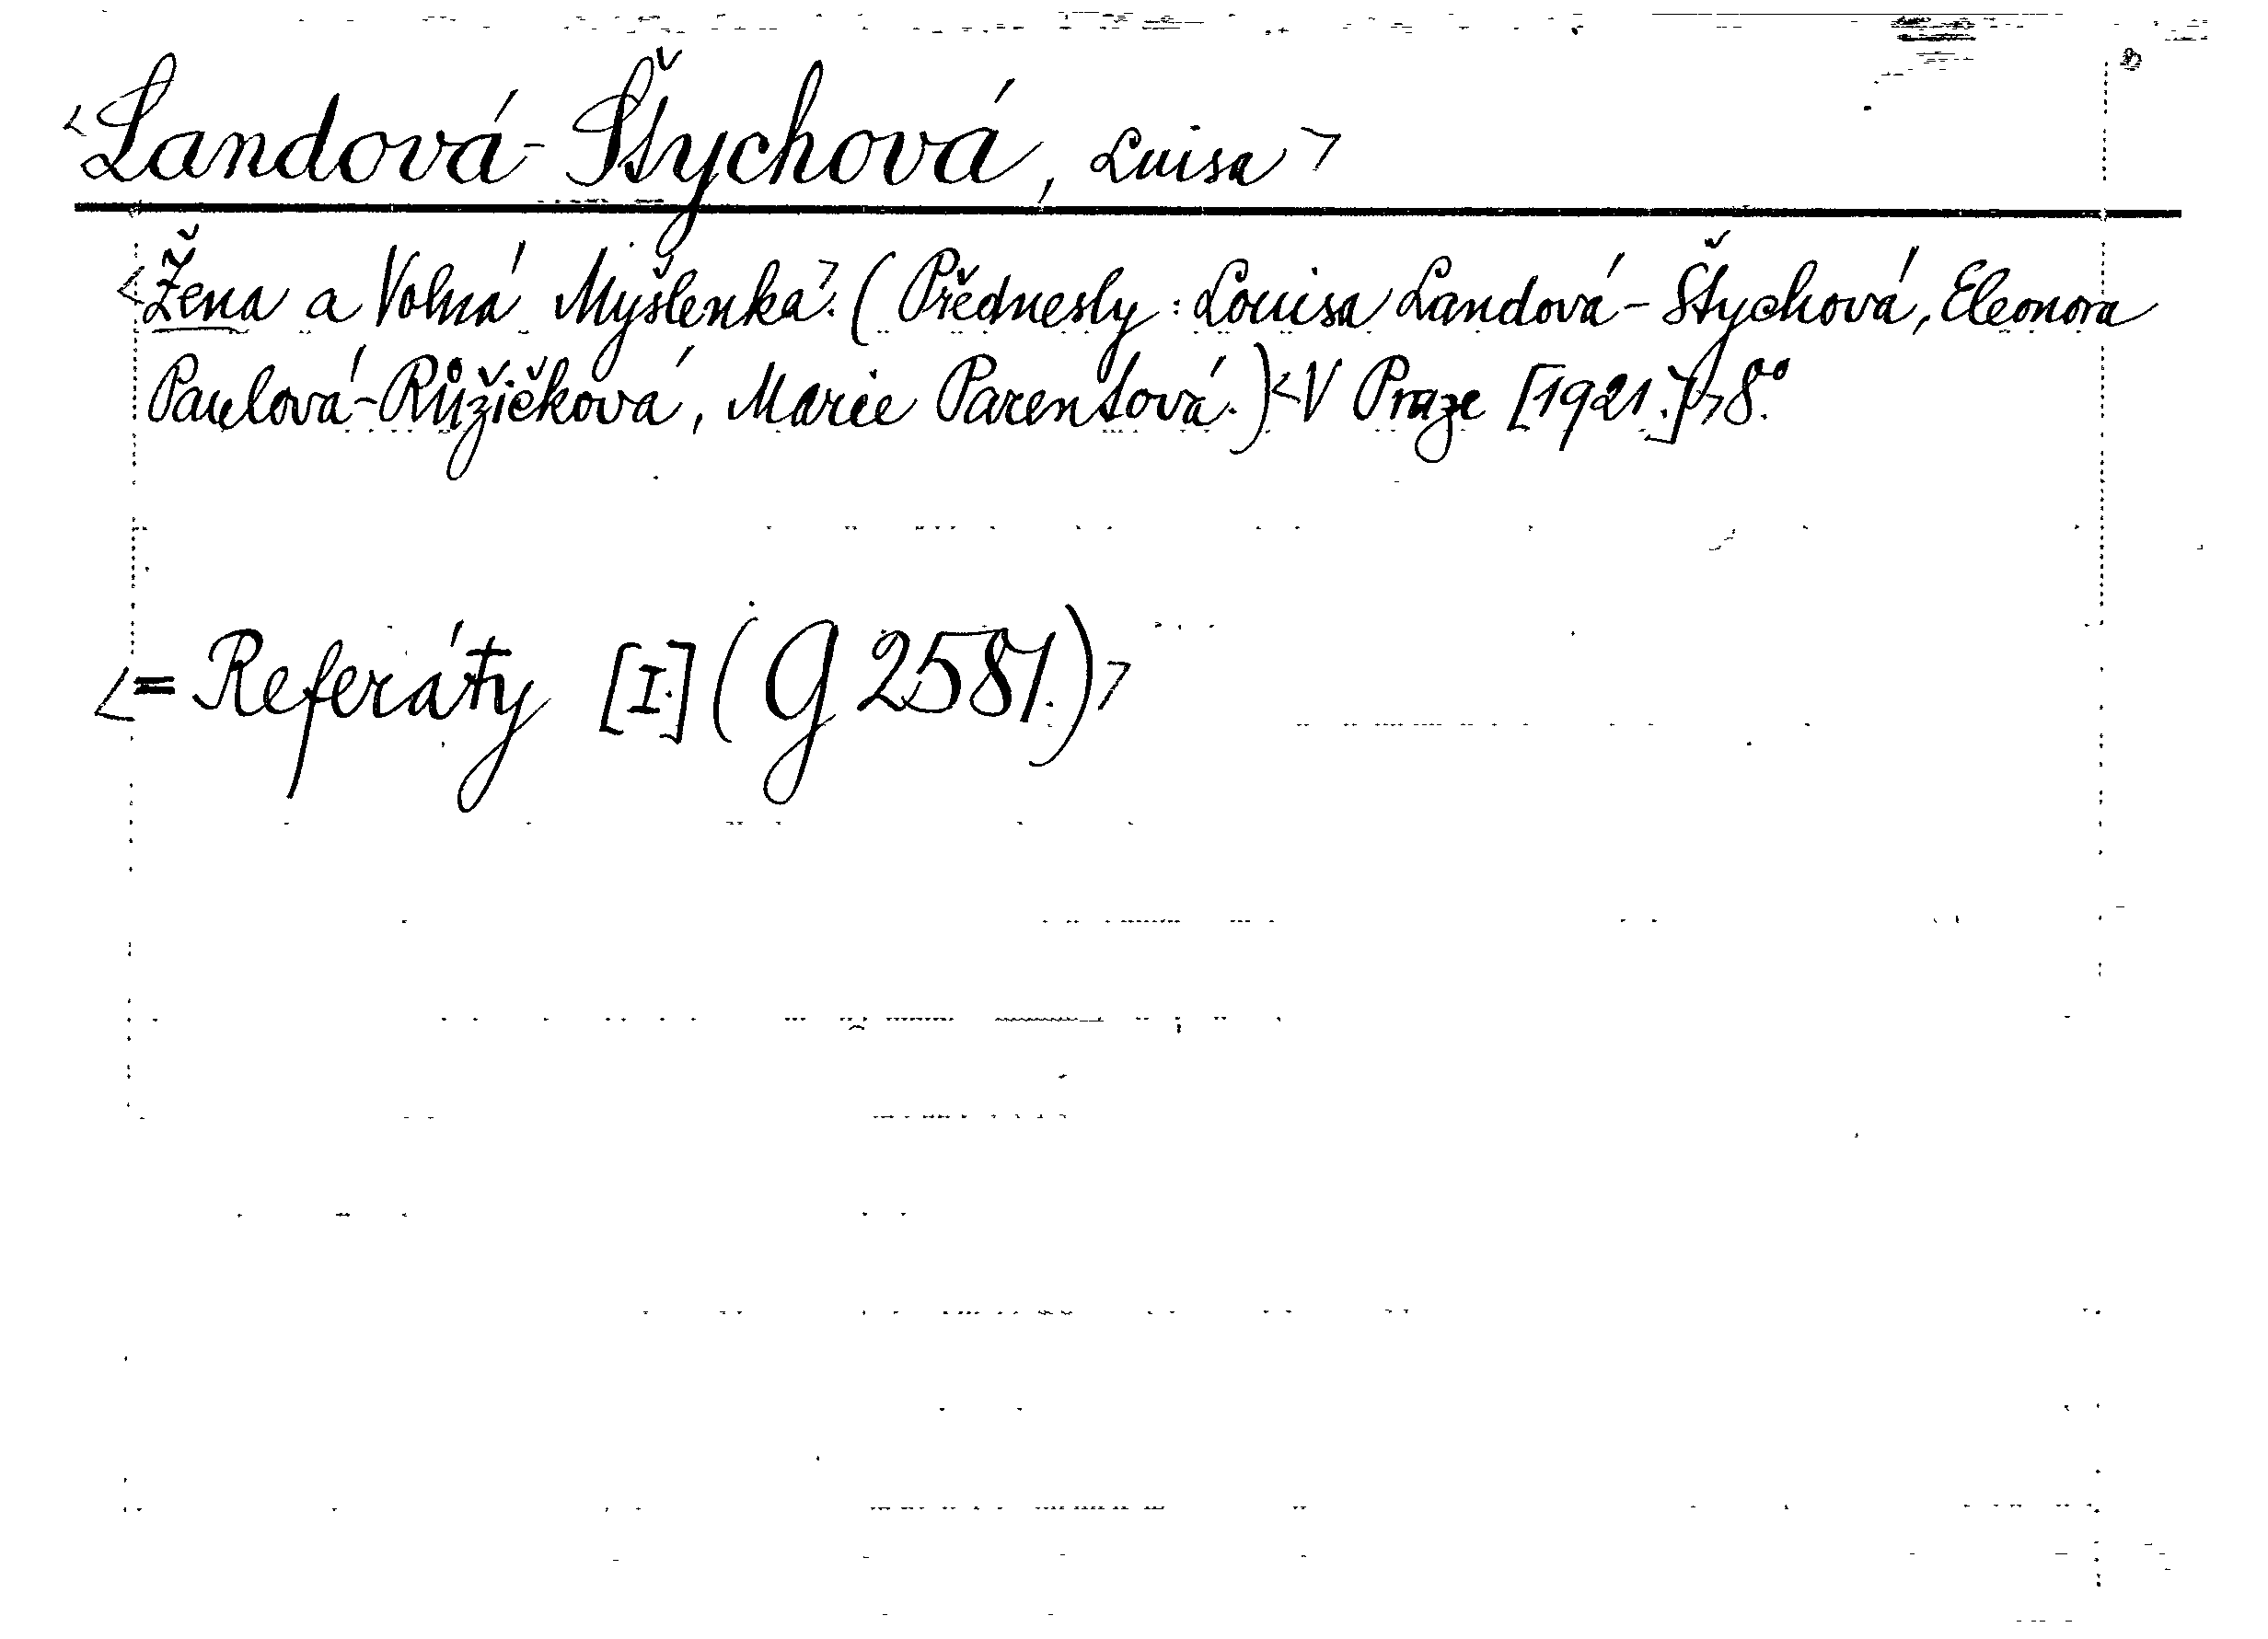 <Landová-Štychová, Luisa>
<Žena a Volná Myšlenka>. (Přědnesly: Louisa Landová-Štychová, Eleonora
Paulová-Růžičková, Marie Parentová.) <V Praze [1921.]> 8.°
<= Referáty [I.] (G 2581.)>